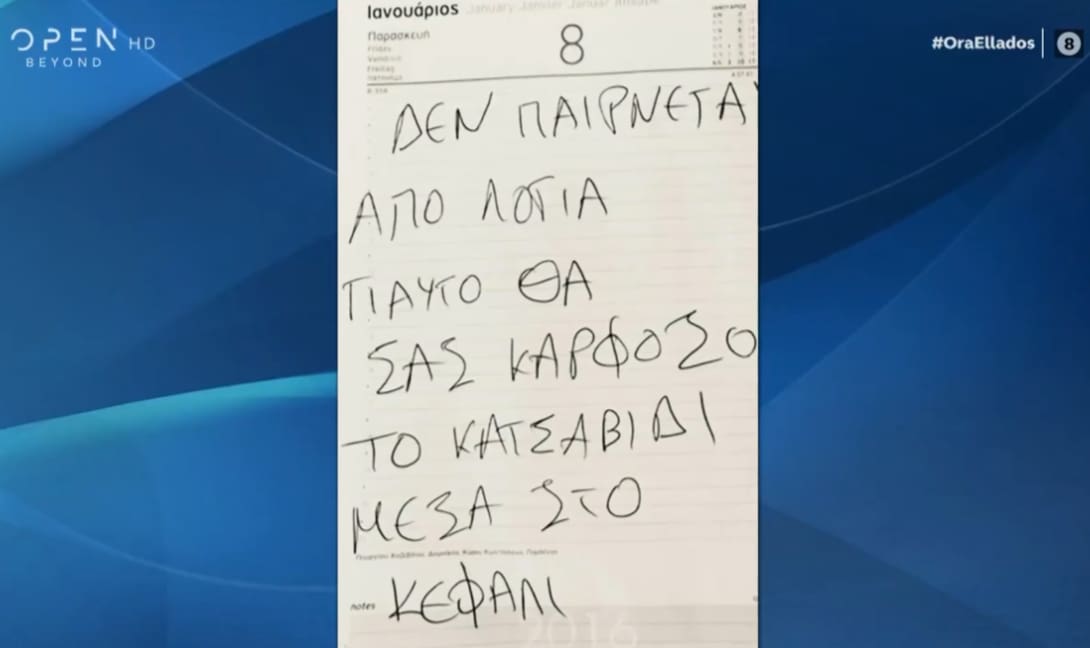 OPEN HD
BEYOND
#OraEllados
8
Ιανουάριος January Januar
Παρασκευή
Friday
8
ΔΕΝ ΠΑΙΡΝΕΤΑΙ
ΑΠΟ ΛΟΓΙΑ
ΓΙΑΥΤΟ ΘΑ
ΣΑΣ ΚΑΡΦΟΣΟ
ΤΟ ΚΑΤΣΑΒΙΔΙ
ΜΕΣΑ ΣΤΟ
notes ΚΕΦΑΛΙ
2016